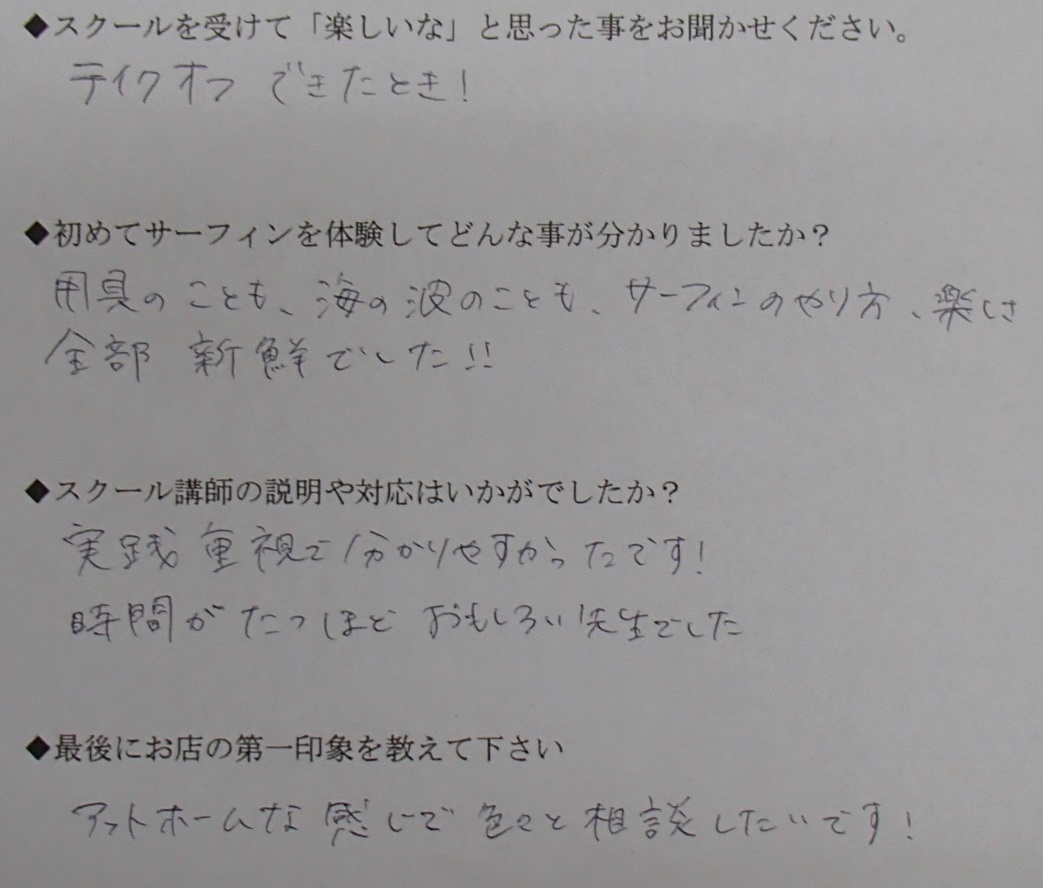 ◆スクールを受けて「楽しいな」と思った事をお聞かせください。
テイクオフ できたとき!
◆初めてサーフィンを体験してどんな事が分かりましたか?
用具のことも、海の波のことも、サーフィンのやり方、楽しさ
全部 新鮮でした!!
◆スクール講師の説明や対応はいかがでしたか?
実践重視で分かりやすかったです!
時間がたつほど おもしろい先生でした
◆最後にお店の第一印象を教えて下さい
アットホームな感じで色々と相談したいです!